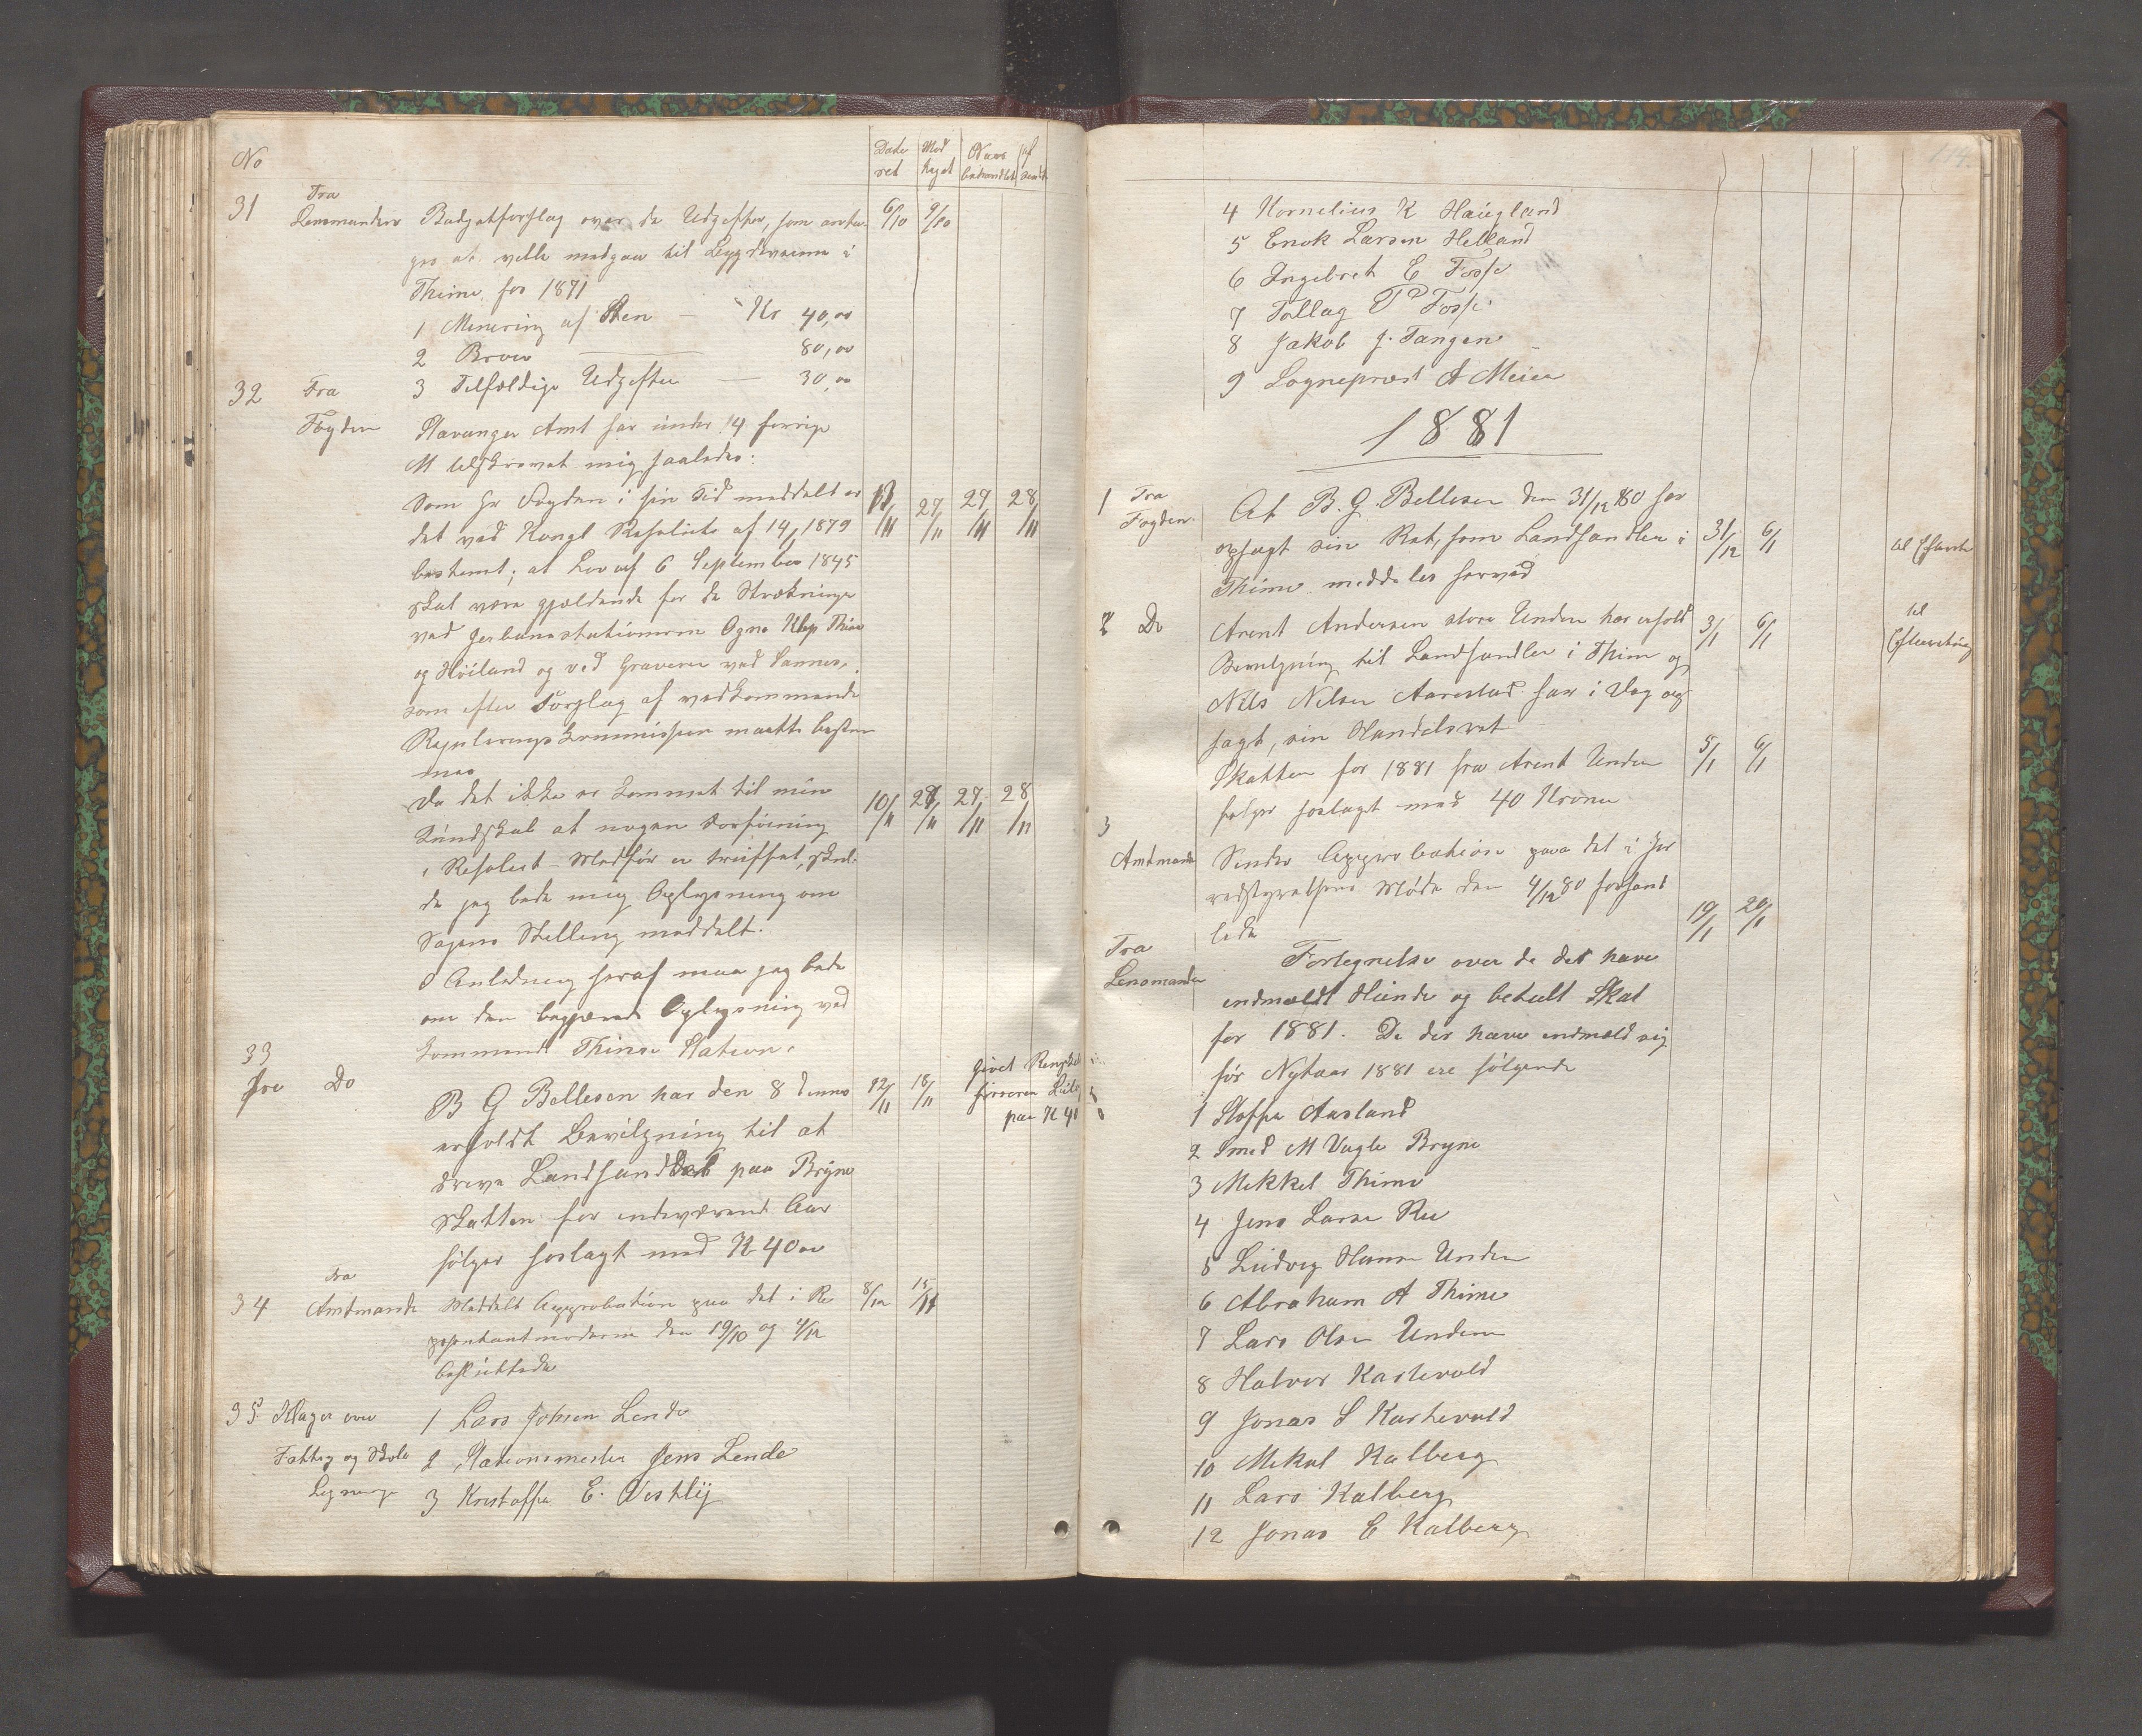 No
Date
ret
Mod
taget
Naar
behandlet
af
sendt
31
Fra
Lensmanden
Budgetforslag over de Udgifter, som antar
6/10 9/10
ges at ville medgaa til Bygdeveiene i
Thime for 1871
1 Minering af Sten — Kr 40,00
2 Broer 80,00
3 Tilfældige Udgifter — 30,00
32
Fra
Fogden
Stavanger Amt har under 14 forrige
M tilskrevet mig saaledes:
Som Hr Fogden i sin Tid meddelt er
det ved Kongl Resolution af 14/ 1879
bestemt, at Lov af 6 September 1845
skal være gjældende for de Strækninger
ved Jerbanestationerne Ogne Klep Thime
og Høiland og ved Graveren ved Sannes,
som efter Forslag af vedkommende
Reguleringskommission maatte bestem
mes
13/11 27/11 27/11 28/11
Da det ikke er kommet til min
Kundskab at nogen Forføining
i Resolut. Medfør er truffet, skul
de jeg bede mig Oplysning om
Sagens Stilling meddelt.
10/11 27/11 27/11 28/11
I Anledning heraf maa jeg bede
om den begjærende Oplysning ved
kommende Thime Station.
33
Fra Do
B G Bellesen har den 8 dennes
12/11 18/11
givet Regnskabs
føreren
paa K 40
erholdt Bevilgning til at
drive Landhandel paa Bryne
Skatten for indeværende Aar
følger hoslagt med K 40 00
34
Fra
Amtmanden
Meddelt Approbation paa det i Re
8/12 15/
præsentantmøderne den 19/10 og 4/12
besluttede
35 Klager over
Fattig og Skole
Ligninge
1 Lars Johsen Lende
2 Stationsmester Jens Lende
3 Kristoffer E. Vestly
114.
4 Kornelius K Haugland
5 Enok Larsen Helland
6 Ingebret E Fosse
7 Tollag P Fosse
8 Jakob J. Tangen
9 Sogneprest A Meier
1881
1
Fra
Fogden
At B. G. Bellesen den 31/12 80 har
opsagt sin Ret, som Landhandler i
31/12 6/1
Thime meddeles herved
2 Do
Arent Andersen store Undem har erholdt
3/1 6/1
til
Bevilgning til Landhandler i Thime og
Nils Nilsen Aarestad har i Dag op
sagt, sin Handelsret
Skatten for 1881 fra Arent Undem
5/1 6/1
følger hoslagt med 40 Kroner
3
Amtmanden
Sender Approbation paa det i Her
redstyrelsens Møde den 4/12 80 forhand
lede
19/1 20/1
Fra
Lensmanden
Fortegnelse over de der have
indmeldt Hunde og betalt Skat
for 1881. De der have indmeld sig
før Nytaar 1881 ere følgende
1 Stoffer Aasland
2 Smed M Vagle Bryne
3 Mikkel Thime
4 Jens Larsen Ree
5 Ludvig Hansen Undem
6 Abraham A Thime
7 Lars Olsen Undem
8 Halvor Kartevold
9 Jonas S Kartevold
10 Mikal Kalberg
11 Lars Kalberg
12 Jonas E Kalberg